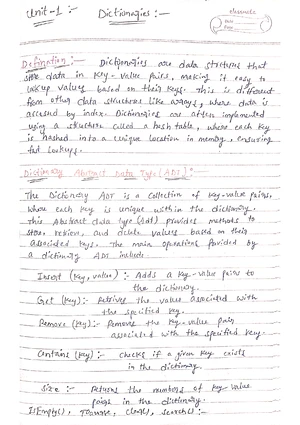 Unit-1 :-
Dictionaries :-
classmate
Date
Page
Definition :- Dictionaries are data structures that
store data in key-value pairs, making it easy to
lookup values based on their keys. This is different
from other data structures like arrays, where data is
accessed by index. Dictionaries are often implemented
using a structure called a hash table, where each key
is hashed into a unique location in memory, ensuring
fast lookups.
Dictionary Abstract Data Type (ADT) :-
The Dictionary ADT is a collection of key-value pairs,
where each key is unique within the dictionary.
This Abstract data type (Adt) provides methods to
store, retrieve, and delete values based on their
associated keys. The main operations provided by
a dictionary ADT include:
Insert (key, value) :- Adds a key-value pair to
the dictionary.
Get (key) :- Retrives the value associated with
the specified key.
Remove (key) :- Removes the key-value pair
associated with the specified key.
Contains (key) :- checks if a given key exists
in the dictionary.
Size :- Returns the numbers of key-value
pairs in the dictionary.
IsEmpty(), Traverse, clear(), search() :-